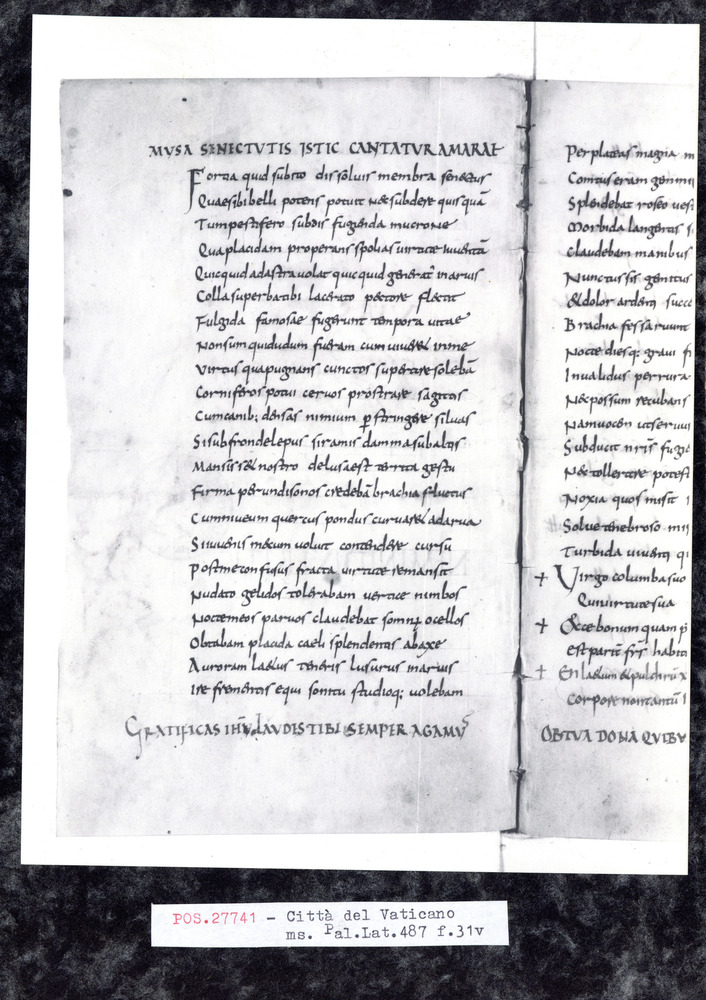 MUSA SENECTUTIS ISTIC CANTATUR AMARAE
Fortia quid subito dissoluis membra senectus
Quae sibi belli potens potuit nec subdere quisquā
Tum pestifero subdis fugienda mucrone
Qua placidam properans spolias uirtute iuuentā
Quicquid ad astra uolat quicquid generat' in aruis
Colla superba tibi lacerato pectore flectit
Fulgida famosae fugerunt tempora uitae
Non sum qui dudum fueram cum uiueret in me
Virtus qua pugnans cunctos superare solebā
Corniferos potui ceruos prostrare sagittis
Cum canib; densas nimium p stringere siluas
Si sub fronde lepus si ramis damma sub altis
Mansisset nostro delusa est territa gestu
Firma per undisonos credebā brachia fluctus
Cum niueum quercus pondus curuaret ad arua
Si iuuenis mecum uoluit contendere cursu
Postme confusus fracta uirtute remansit
Nudato gelidos tolerabam uertice nimbos
Nocte meos paruos claudebat somnus ocellos
Obtabam placida caeli splendentis ab axe
Auroram laetus teneris lusurus in aruis
Ire frementis equi sonitu studioq; uolebam
GRATIFICAS IHŪ LAUDES TIBI SEMPER AGAMUS
Per plateas magna
Comtus eram gemmi
Splendebat roseo ues
Morbida langentis
Claudebam manibus
Nunc tussis gemitus
& dolor ardens succe
Brachia fessa ruunt
Nocte dieq; graui
Inualidus per rura
Nec possum recubans
Nam uocem ut seruu
Subducit nr̄is fugi
Nec tollerare potest
Noxia quos misit
Solue tenebroso
Turbida uiuens qui
+ Virgo columba suo
Qui uirtute sua
+ Ecce bonum quam
est pariē frs̄ habita
+ En laetum & pulchrū
corpore non tantū
OB TUA DONA QUIBU
POS.27741 - Città del Vaticano
ms. Pal.Lat.487 f.31v